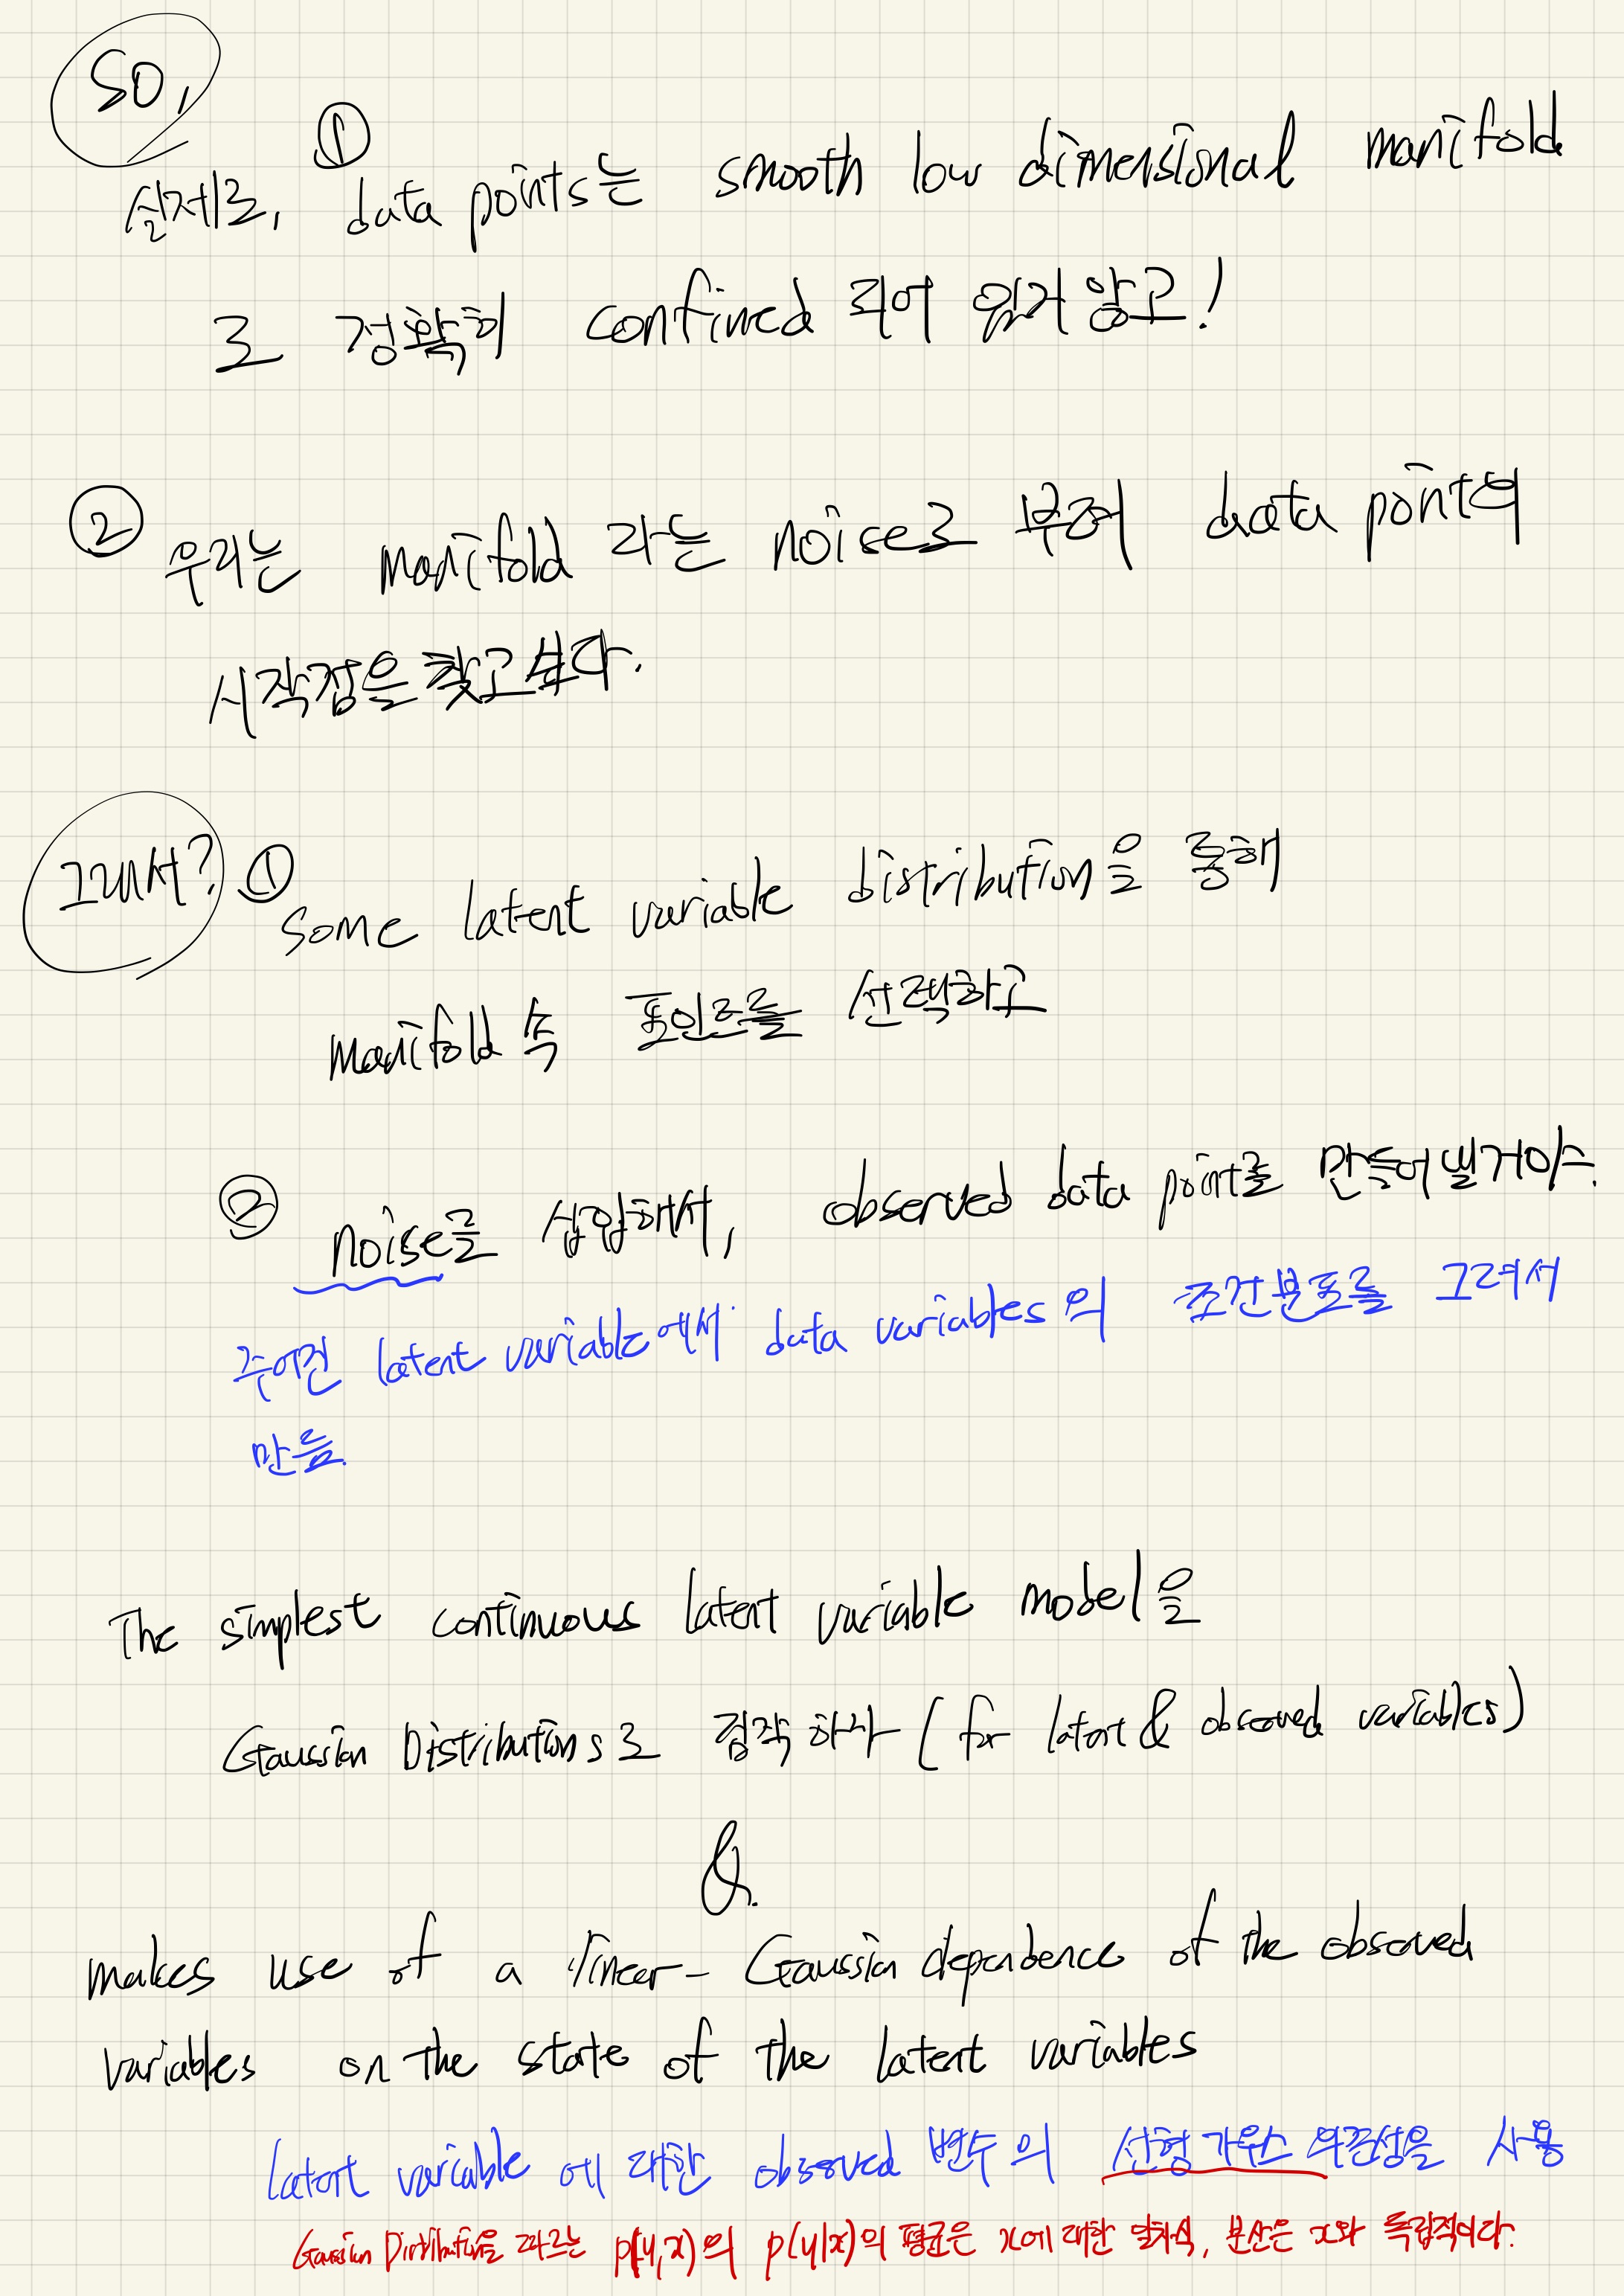 So,
① 실제로, data points는 smooth low dimensional manifold
로 정확히 confined 되어 있지 않고!
② 우리는 manifold 라는 noise로 부터 data point의
시작점을 찾고보다.
그래서? ① Some latent variable distribution을 통해
manifold 속 포인트를 선택하고
② noise를 삽입해서, observed data point를 만들어낼거야.
주어진 latent variable에서 data variables의 조건분포를 그려서
만듦.
The simplest continuous latent variable model을
Gaussian Distributions로 짐작하자 (for latent & observed variables)
&.
makes use of a linear-Gaussian dependence of the observed
variables on the state of the latent variables
latent variable에 대한 observed 변수의 선형 가우스 의존성을 사용
Gaussian Distribution을 따르는 p(y,x)의 p(y|x)의 평균은 x에 대한 일차식, 분산은 x와 독립적이다.